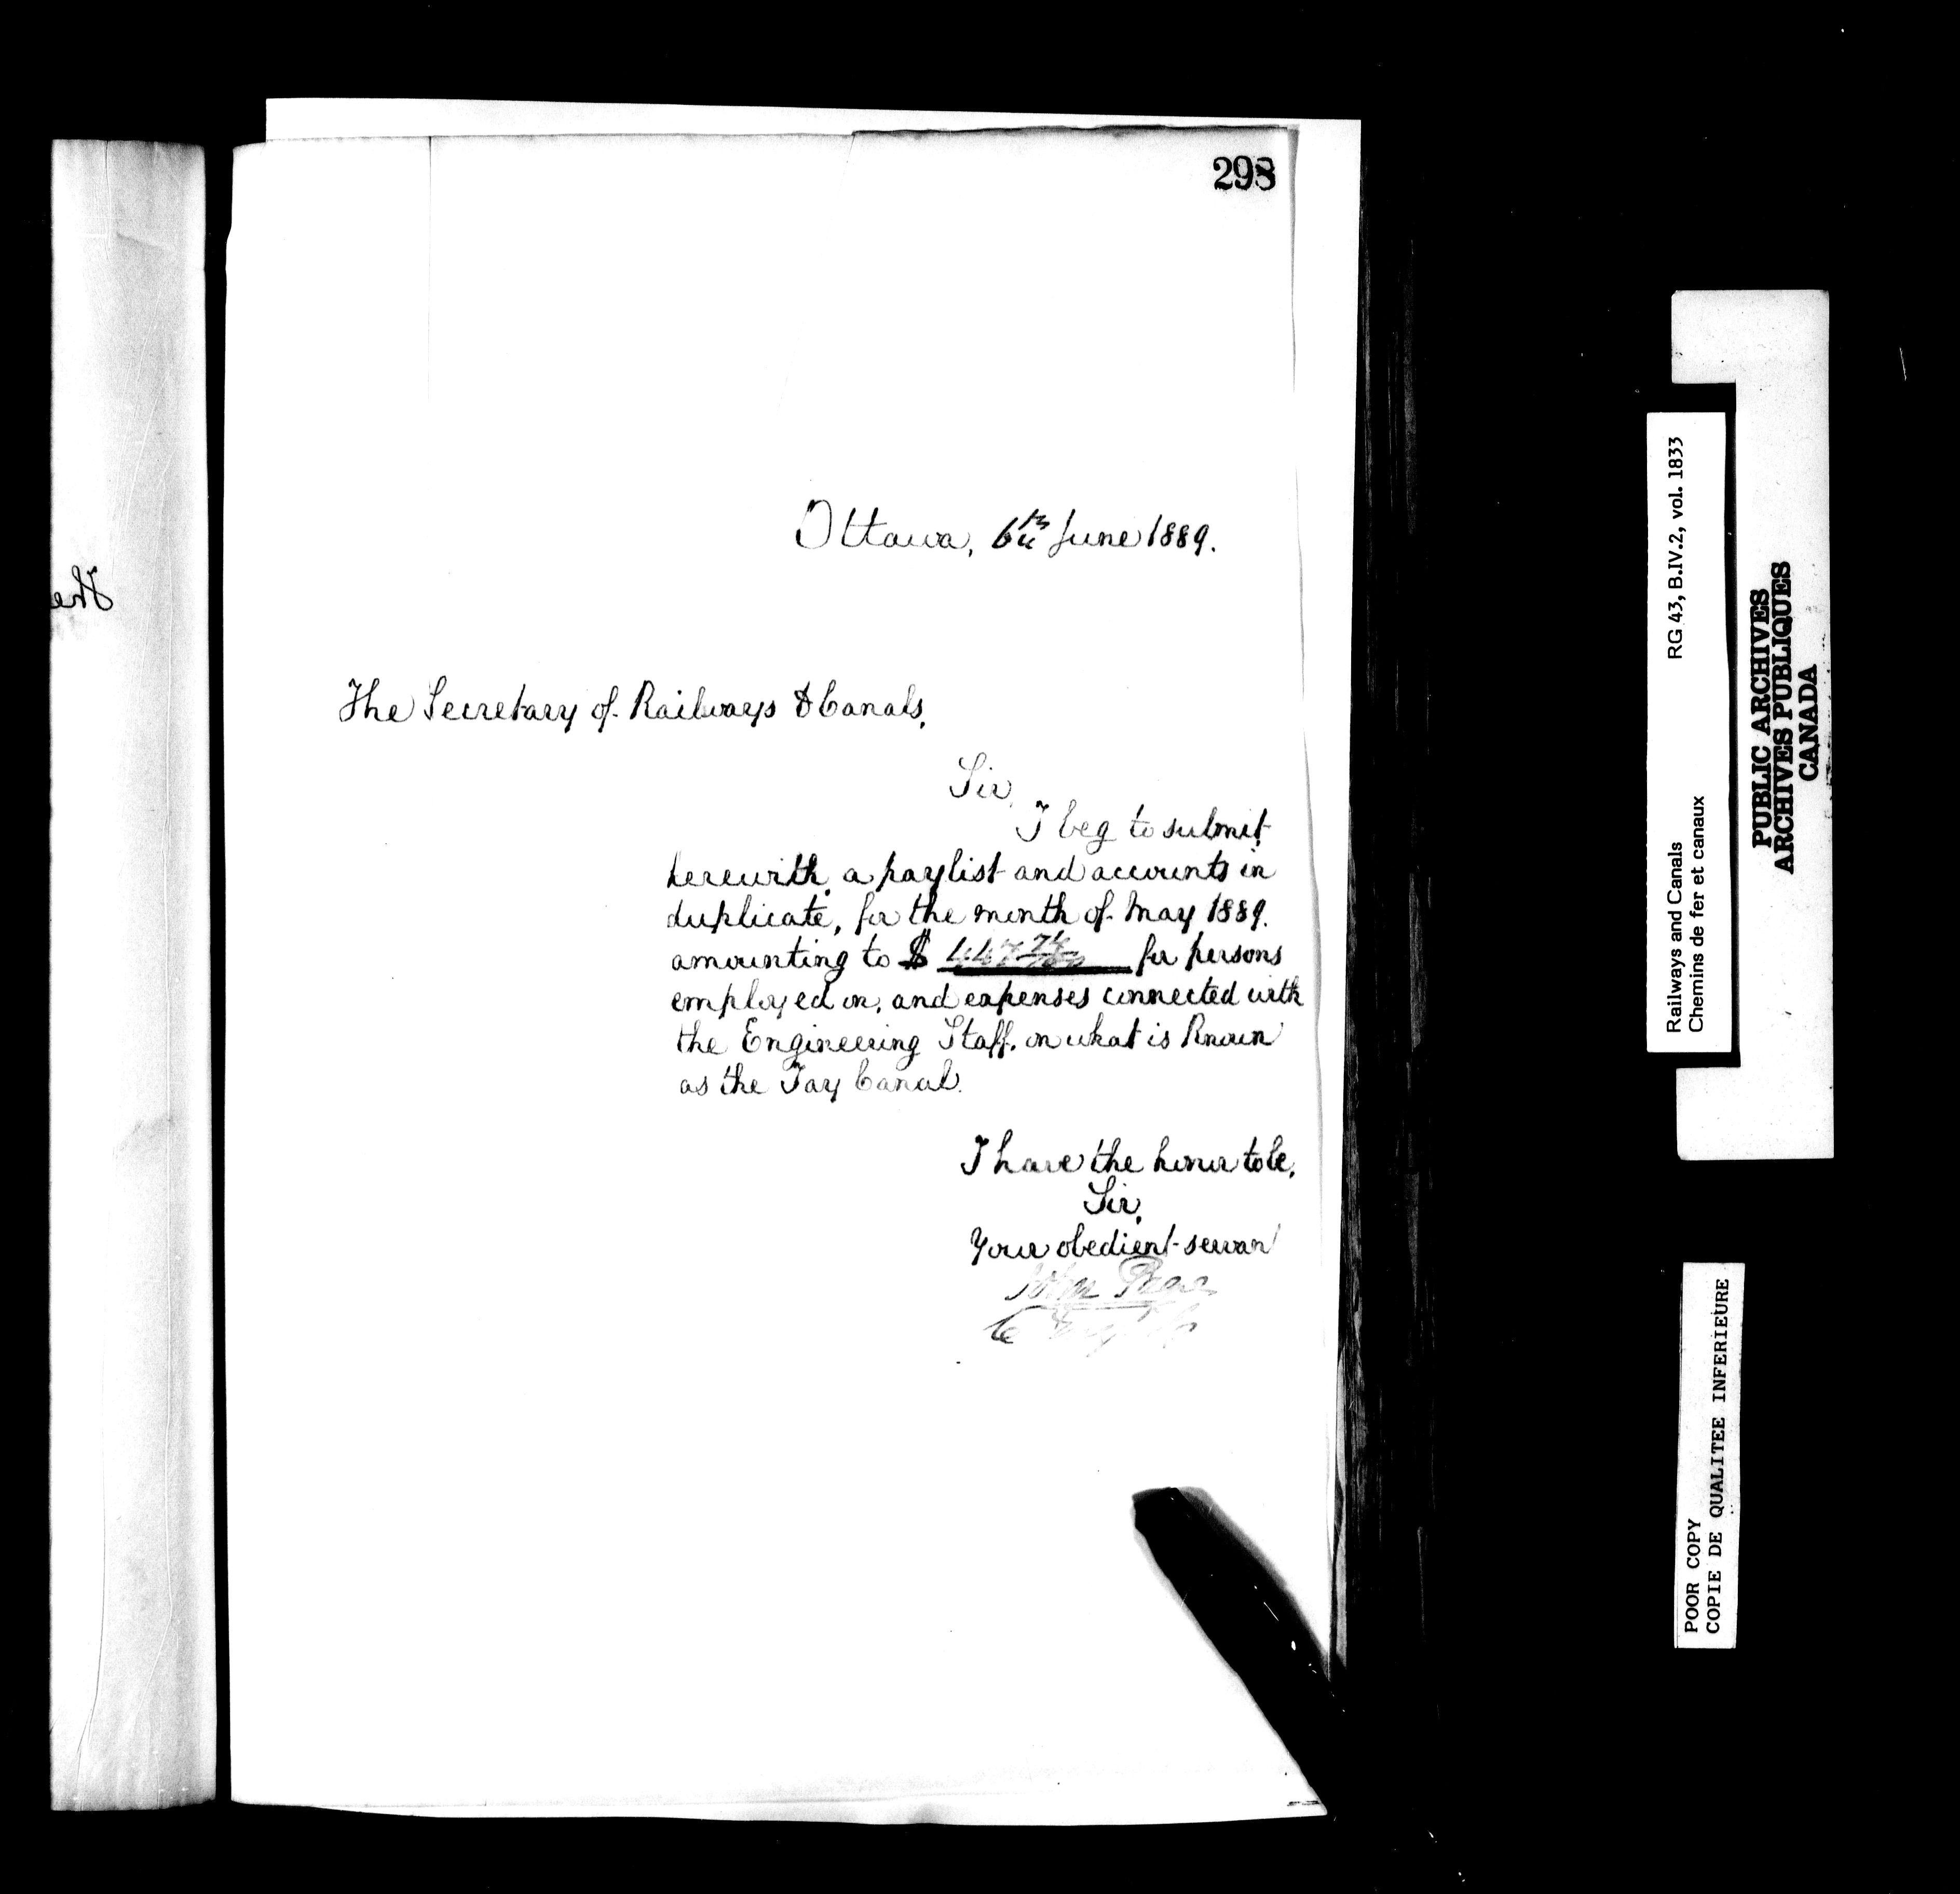 298
Ottawa, 6th June 1889.
The
The Secretary of Railways & Canals,
Sir,
I beg to submit
herewith, a paylist and accounts in
duplicate, for the month of May 1889.
amounting to $ 447 74/100 for persons
employed on, and expenses connected with
the Engineering Staff, on what is Known
as the Tay Canal.
I have the honor to be,
Sir,
Your obedient servan
John Page
RG 43, B.IV.2, vol. 1833
Railways and Canals
Chemins de fer et canaux
PUBLIC ARCHIVES
ARCHIVES PUBLIQUES
CANADA
POOR COPY
COPIE DE QUALITEE INFERIEURE